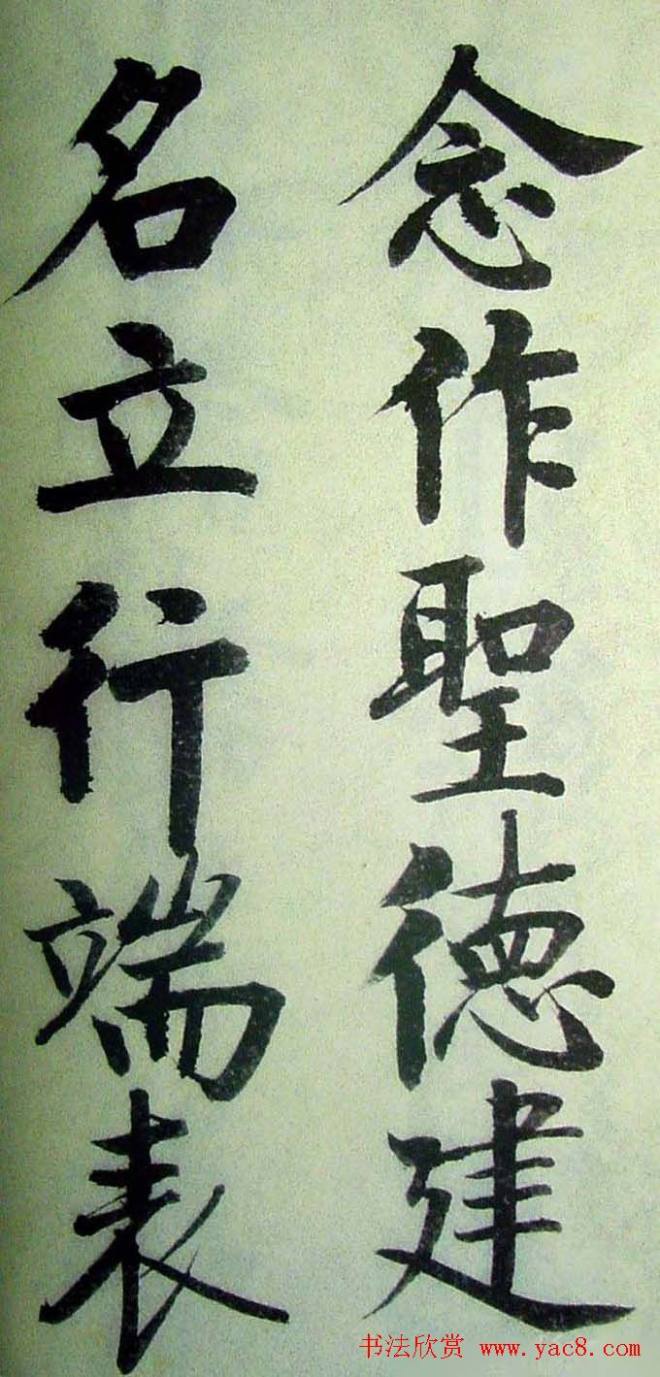 念作聖德建
名立行端表
书法欣赏 www.yac8.com